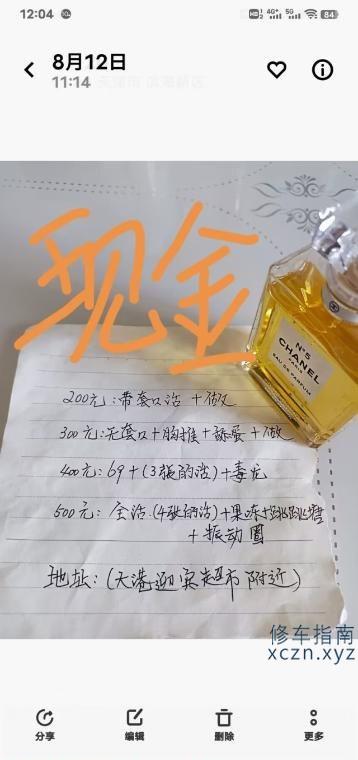 12:04
4G+
5G
84
8月12日
11:14
现金
N°5
CHANEL
PARIS
EAU DE PARFUM
200元:带套口活+做
300元:无套口+胸推+舔蛋+做
400元:69+(3张的活)+毒龙
500元:全活(4张的活)+果冻+跳跳糖
+振动圈
地址:(大港迎宾超市附近)
修车指南
xczn.xyz
分享
编辑
删除
更多